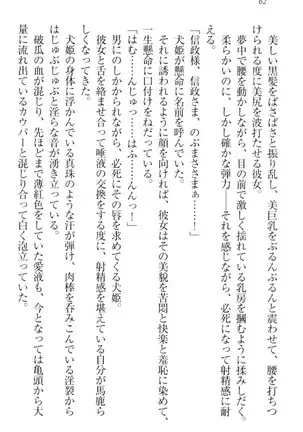 62
美しい黒髪をばさばさと振り乱し、美巨乳をぶるんぶるんと震わせて、腰を打ちつ
けられる度に美尻を波打たせる彼女。
夢中で腰を動かしながら、目の前で激しく揺れている乳房を掴むように揉みしだく。
柔らかいのに、しかし確かな弾力――それを感じながら、必死になって射精感に耐
える。
「信政様、信政さま、のぶまささまぁっ!」
犬姫が懸命に名前を呼んでいた。
それに誘われるように顔を向ければ、彼女はその美貌を苦悶と快楽と羞恥に染めて、
一生懸命に口付けをねだっている。
「はむ……んじゅっ……はふ…んんっ!」
男にのしかかられながら、必死にその唇を求めてくる犬姫。
彼女と舌を絡ませて唾液の交換をする度に、射精感を堪えている自分が馬鹿らし
くなってきた。
犬姫の身体に浮かんでいる真珠のような汗が弾け、肉棒を呑みこんでいる淫裂から
はじゅぶじゅぶと淫らな音が湧き立っている。
破瓜の血が混じり、先ほどまで薄紅色をしていた愛液も、今となっては亀頭から大
量に流れ出ているカウパーと混じり合って白く泡立っていた。